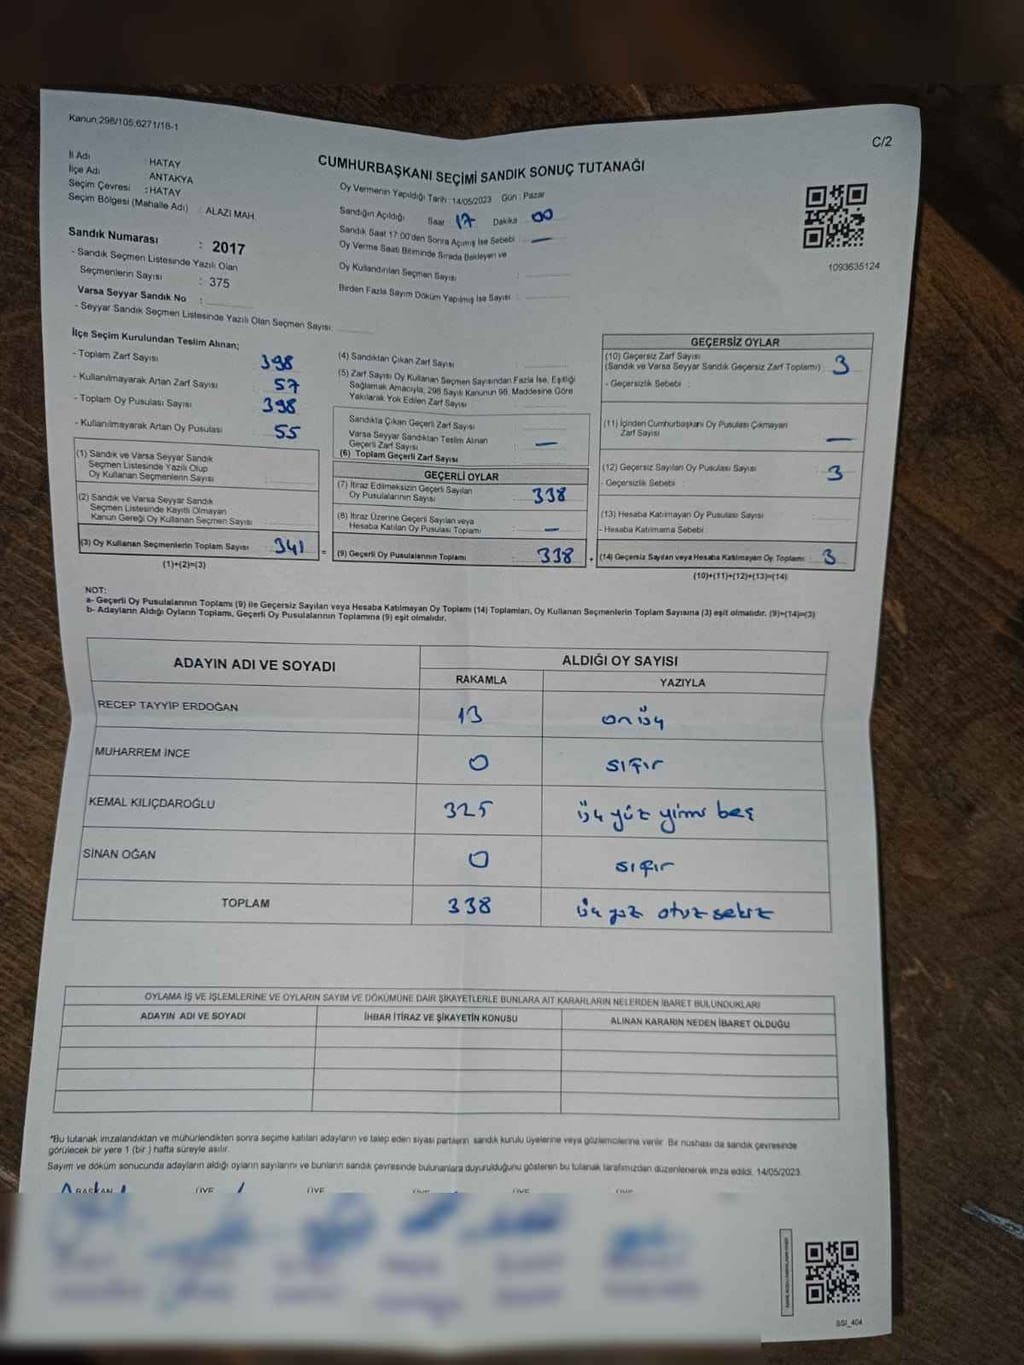 Kanun 298/105,6271/18-1
C/2
CUMHURBAŞKANI SEÇİMİ SANDIK SONUÇ TUTANAĞI
İl Adı : HATAY
İlçe Adı : ANTAKYA
Seçim Çevresi : HATAY
Seçim Bölgesi (Mahalle Adı) : ALAZI MAH.
Sandık Numarası : 2017
- Sandık Seçmen Listesinde Yazılı Olan
Seçmenlerin Sayısı : 375
Varsa Seyyar Sandık No :
- Seyyar Sandık Seçmen Listesinde Yazılı Olan Seçmen Sayısı:
Oy Vermenin Yapıldığı Tarih : 14/05/2023 Gün : Pazar
Sandığın Açıldığı Saat 17 Dakika 00
Sandık Saat 17:00'den Sonra Açılmış İse Sebebi : —
Oy Verme Saati Bitiminde Sırada Bekleyen ve
Oy Kullandırılan Seçmen Sayısı :
Birden Fazla Sayım Döküm Yapılmış İse Sayısı :
1093635124
İlçe Seçim Kurulundan Teslim Alınan;
- Toplam Zarf Sayısı 398
- Kullanılmayarak Artan Zarf Sayısı 57
- Toplam Oy Pusulası Sayısı 398
- Kullanılmayarak Artan Oy Pusulası 55
(1) Sandık ve Varsa Seyyar Sandık
Seçmen Listesinde Yazılı Olup
Oy Kullanan Seçmenlerin Sayısı
(2) Sandık ve Varsa Seyyar Sandık
Seçmen Listesinde Kayıtlı Olmayan
Kanun Gereği Oy Kullanan Seçmen Sayısı
(3) Oy Kullanan Seçmenlerin Toplam Sayısı 341
(1)+(2)=(3)
=
(4) Sandıktan Çıkan Zarf Sayısı
(5) Zarf Sayısı Oy Kullanan Seçmen Sayısından Fazla İse, Eşitliği
Sağlamak Amacıyla, 298 Sayılı Kanunun 98. Maddesine Göre
Yakılarak Yok Edilen Zarf Sayısı
Sandıkta Çıkan Geçerli Zarf Sayısı
Varsa Seyyar Sandıktan Teslim Alınan
Geçerli Zarf Sayısı
(6) Toplam Geçerli Zarf Sayısı —
GEÇERLİ OYLAR
(7) İtiraz Edilmeksizin Geçerli Sayılan
Oy Pusulalarının Sayısı 338
(8) İtiraz Üzerine Geçerli Sayılan veya
Hesaba Katılan Oy Pusulası Toplamı —
(9) Geçerli Oy Pusulalarının Toplamı 338
+
GEÇERSİZ OYLAR
(10) Geçersiz Zarf Sayısı
(Sandık ve Varsa Seyyar Sandık Geçersiz Zarf Toplamı) 3
- Geçersizlik Sebebi :
(11) İçinden Cumhurbaşkanı Oy Pusulası Çıkmayan
Zarf Sayısı —
(12) Geçersiz Sayılan Oy Pusulası Sayısı 3
- Geçersizlik Sebebi :
(13) Hesaba Katılmayan Oy Pusulası Sayısı
- Hesaba Katılmama Sebebi :
(14) Geçersiz Sayılan veya Hesaba Katılmayan Oy Toplamı 3
(10)+(11)+(12)+(13)=(14)
NOT:
a- Geçerli Oy Pusulalarının Toplamı (9) ile Geçersiz Sayılan veya Hesaba Katılmayan Oy Toplamı (14) Toplamları, Oy Kullanan Seçmenlerin Toplam Sayısına (3) eşit olmalıdır. (9)+(14)=(3)
b- Adayların Aldığı Oyların Toplamı, Geçerli Oy Pusulalarının Toplamına (9) eşit olmalıdır.
ADAYIN ADI VE SOYADI
ALDIĞI OY SAYISI
RAKAMLA YAZIYLA
RECEP TAYYİP ERDOĞAN 13 onüç
MUHARREM İNCE 0 sıfır
KEMAL KILIÇDAROĞLU 325 üç yüz yirmi beş
SİNAN OĞAN 0 sıfır
TOPLAM 338 üç yüz otuz sekiz
OYLAMA İŞ VE İŞLEMLERİNE VE OYLARIN SAYIM VE DÖKÜMÜNE DAİR ŞİKAYETLERLE BUNLARA AİT KARARLARIN NELERDEN İBARET BULUNDUKLARI
ADAYIN ADI VE SOYADI İHBAR İTİRAZ VE ŞİKAYETİN KONUSU ALINAN KARARIN NEDEN İBARET OLDUĞU
*Bu tutanak imzalandıktan ve mühürlendikten sonra seçime katılan adayların ve talep eden siyasi partilerin sandık kurulu üyelerine veya gözlemcilerine verilir. Bir nüshası da sandık çevresinde
görülecek bir yere 1 (bir ) hafta süreyle asılır.
Sayım ve döküm sonucunda adayların aldığı oyların sayılarını ve bunların sandık çevresinde bulunanlara duyurulduğunu gösteren bu tutanak tarafımızdan düzenlenerek imza edildi. 14/05/2023
BAŞKAN ÜYE ÜYE ÜYE ÜYE ÜYE
SSI_404